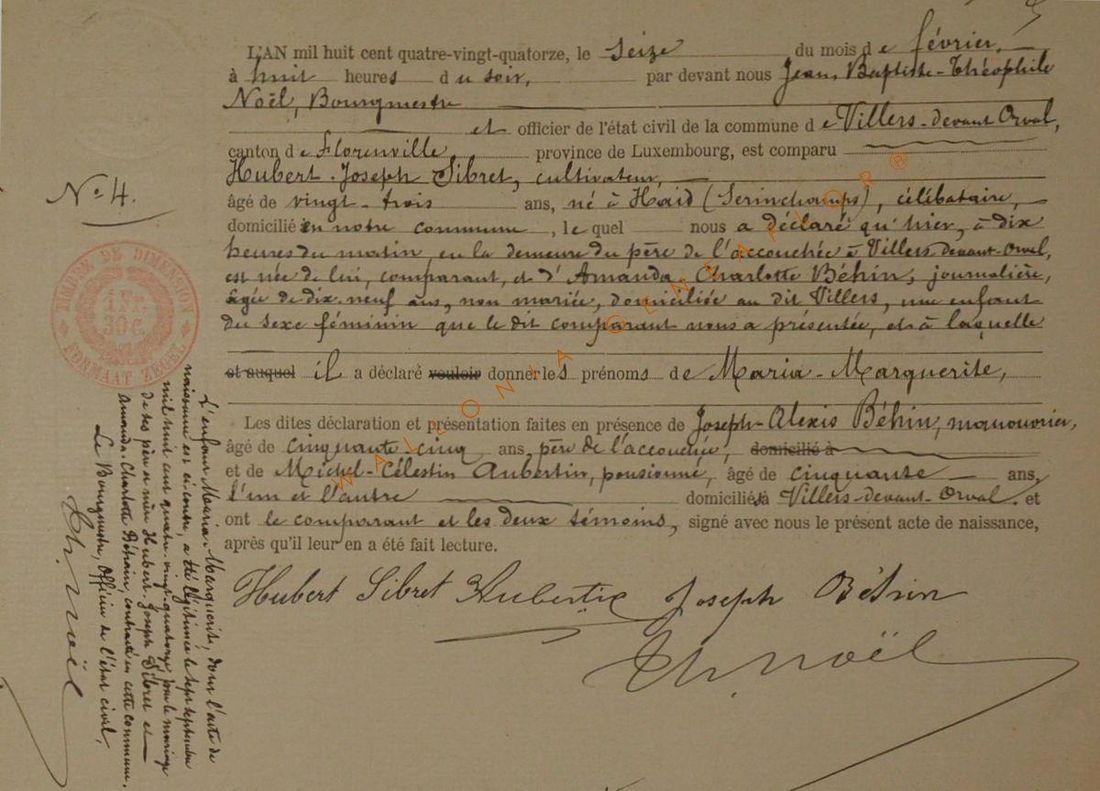 L'AN mil huit cent quatre-vingt-quatorze, le seize du mois de février,
à huit heures du soir, par devant nous Jean-Baptiste-Théophile
Noël, Bourgmestre
et officier de l'état civil de la commune de Villers-devant-Orval,
canton de Florenville, province de Luxembourg, est comparu
Hubert-Joseph Sibret, cultivateur,
âgé de vingt-trois ans, né à Haid (Serinchamps), célibataire,
domicilié en notre commune, lequel nous a déclaré qu'hier, à dix
heures du matin, en la demeure du père de l'accouchée à Villers-devant-Orval,
est née de lui, comparant, et d'Amanda-Charlotte Béhin, journalière,
âgée de dix-neuf ans, non mariée, domiciliée au dit Villers, une enfant
du sexe féminin que le dit comparant nous a présentée, et à laquelle
et auquel il a déclaré vouloir donner les prénoms de Maria-Marguerite,
Les dites déclaration et présentation faites en présence de Joseph-Alexis Béhin, manouvrier,
âgé de cinquante-cinq ans, père de l'accouchée, domicilié à
et de Michel-Célestin Aubertin, pensionné, âgé de cinquante ans,
l'un et l'autre domiciliés à Villers-devant-Orval. et
ont le comparant et les deux témoins, signé avec nous le présent acte de naissance,
après qu'il leur en a été fait lecture.
Hubert Sibret Aubertin Joseph Béhin
Th. Noël
N° 4.
TIMBRE DE DIMENSION
1 Fr.
30 C.
FORMAAT ZEGEL
L'enfant Maria-Marguerite, dont l'acte de
naissance est ci-contre, a été légitimée le sept septembre
mil huit cent quatre-vingt-quatorze, par le mariage
de ses père et mère Hubert-Joseph Sibret et
Amanda-Charlotte Béhin, contracté en cette commune.
Le Bourgmestre, Officier de l'état civil,
Th. Noël
WALLONIA